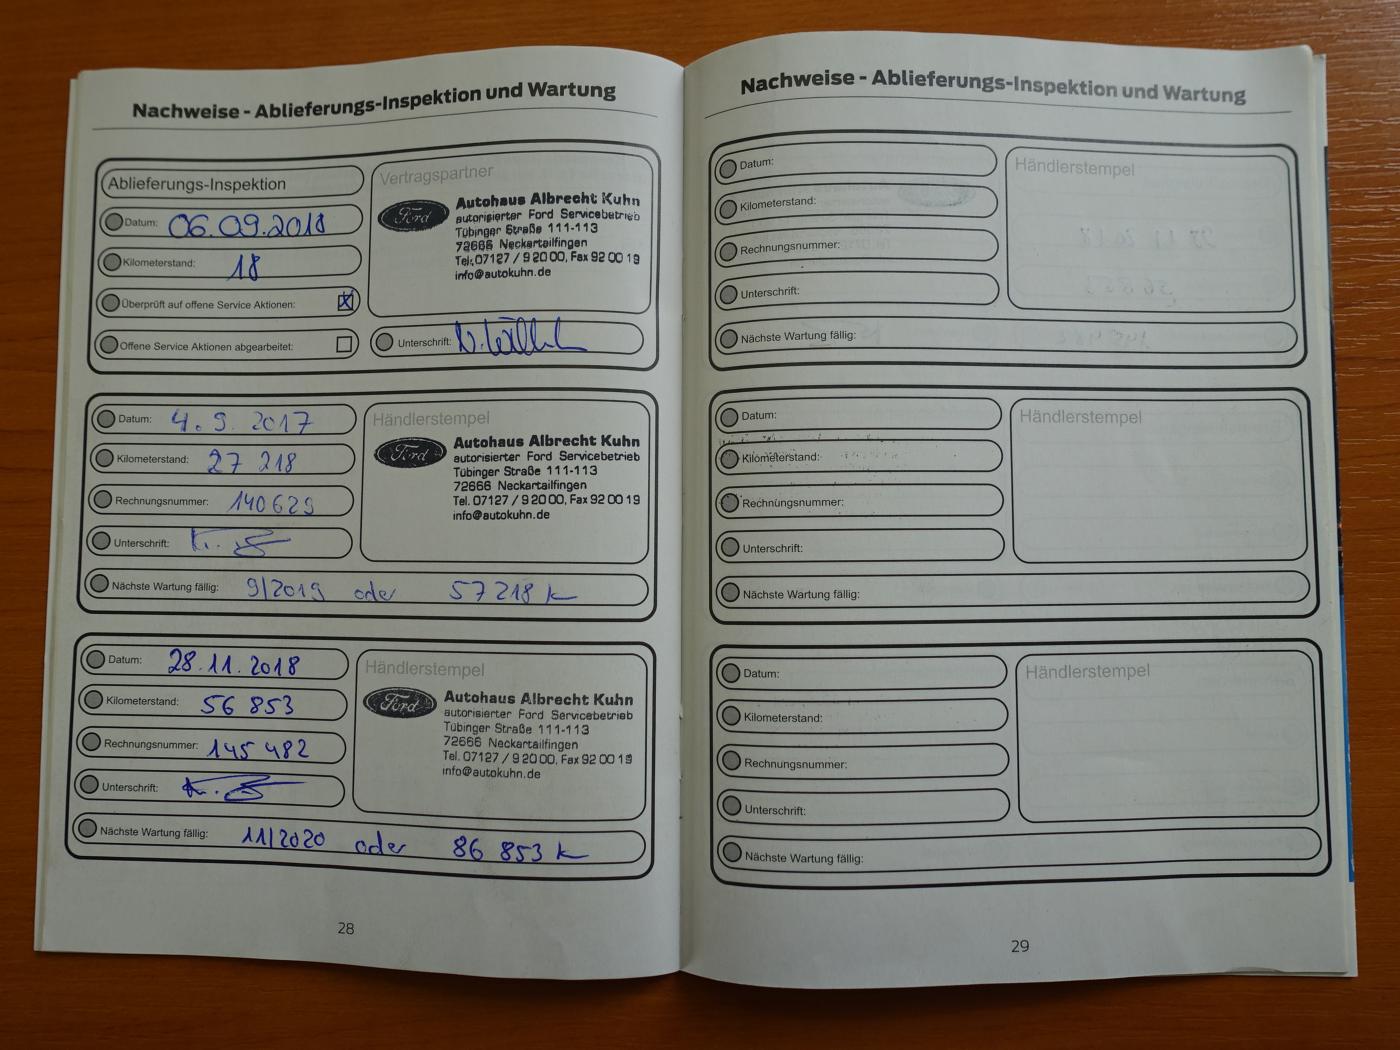 Nachweise - Ablieferungs-Inspektion und Wartung
Ablieferungs-Inspektion
Datum: 06.09.2018
Kilometerstand: 18
Überprüft auf offene Service Aktionen: X
Offene Service Aktionen abgearbeitet:
Vertragspartner
Ford
Autohaus Albrecht Kuhn
autorisierter Ford Servicebetrieb
Tübinger Straße 111-113
72666 Neckartailfingen
Tel. 07127 / 9 20 00, Fax 92 00 19
info@autokuhn.de
Unterschrift:
Datum: 4.9.2017
Kilometerstand: 27 218
Rechnungsnummer: 140629
Unterschrift:
Händlerstempel
Ford
Autohaus Albrecht Kuhn
autorisierter Ford Servicebetrieb
Tübinger Straße 111-113
72666 Neckartailfingen
Tel. 07127 / 9 20 00, Fax 92 00 19
info@autokuhn.de
Nächste Wartung fällig: 9/2019 oder 57 218 k
Datum: 28.11.2018
Kilometerstand: 56 853
Rechnungsnummer: 145 482
Unterschrift:
Händlerstempel
Ford
Autohaus Albrecht Kuhn
autorisierter Ford Servicebetrieb
Tübinger Straße 111-113
72666 Neckartailfingen
Tel. 07127 / 9 20 00, Fax 92 00 19
info@autokuhn.de
Nächste Wartung fällig: 11/2020 oder 86 853 k
28
Nachweise - Ablieferungs-Inspektion und Wartung
Datum:
Kilometerstand:
Rechnungsnummer:
Unterschrift:
Händlerstempel
Nächste Wartung fällig:
Datum:
Kilometerstand:
Rechnungsnummer:
Unterschrift:
Händlerstempel
Nächste Wartung fällig:
Datum:
Kilometerstand:
Rechnungsnummer:
Unterschrift:
Händlerstempel
Nächste Wartung fällig:
29